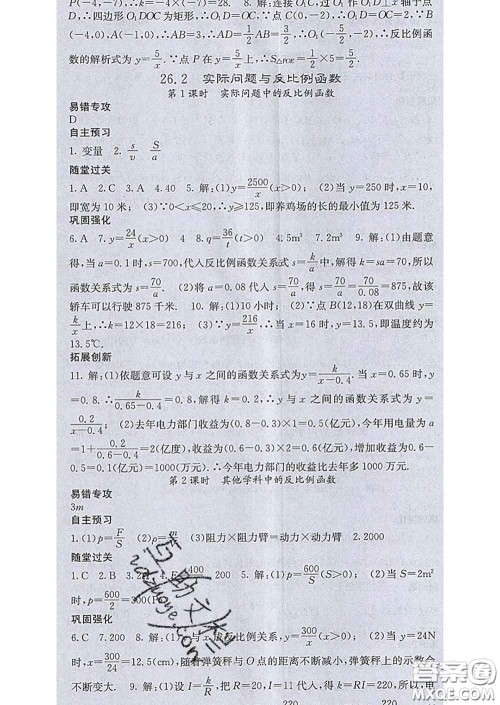 P(-4,-7),∴k=-4×(-7)=28. 8. 解:连接O₁C,过O₁作O₁D⊥x轴于点
D,∴四边形O₁DOC为矩形,∴O₁D=OC. ∵点C(0,-2),∴O₁D=OC=2,∵B
(-4,0),A(-1,0),∴AB=3,∴AD=1/2AB=3/2,∴OD=5/2,∴O₁(-5/2,-2),∴反比例函
数的解析式为y=5/x. ∵点P在y=5/x上,∴S△POE=1/2×5=5/2.
26.2 实际问题与反比例函数
第1课时 实际问题中的反比例函数
易错专攻
D
自主预习
1. 变量 2. s/v S/a
随堂过关
1. A 2. C 3. A 4. 40 5. 解:(1)y=2500/x(x>0); (2)当y=250时,x=10,
即宽为10米; (3)∵0<x≤20,∴y≥125,即养鸡场的长的最小值为125米.
巩固强化
6. A 7. y=24/x(x>0) 4 8. q=36/t(t>0) 4.5m³ 7.2m³ 9. 解:(1)由题意
得,当a=0.1时,s=700,代入反比例函数关系式s=k/a中,解得k=sa=70,所以
函数关系式为s=70/a; (2)当a=0.08时,s=70/a=70/0.08=875,故该
轿车可以行驶875千米. 10. 解:(1)10小时; (2)∵点B(12,18)在双曲线y=
k/x上,∴k=12×18=216; (3)∵y=216/x,∴当x=16时,y=13.5,即温度约为
13.5℃.
拓展创新
11. 解:(1)依题意可设y与x之间的函数关系式为y=k/(x-0.4),当x=0.65时,y
=0.8. ∴k/(0.65-0.4)=0.8. 解得k=0.2,∴y与x之间的函数关系式为y=
0.2/(x-0.4); (2)去年电力部门的收益为(0.8-0.3)×1=0.5(亿元),今年用电量为
1+0.2/(0.6-0.4)=2(亿度),收益为(0.6-0.3)×2=0.6(亿元),增加收益为0.6-
0.5=0.1(亿元)=1000(万元).∴今年电力部门的收益比去年多1000万元.
第2课时 其他学科中的反比例函数
易错专攻
3m
自主预习
1. (1)p=F/S (3)阻力×阻力臂=动力×动力臂 2. 2000
随堂过关
(1)p=600/S(S>0); (2)当S=2m²
时,p=600/2=300
巩固强化
6. C 7. 200 8. 解:(1)y与x成反比例关系,y=300/x; (2)当y=24N
时,x=300/24=12.5(cm),随着弹簧秤与O点的距离不断减小,弹簧秤上的示数会
不断变大. 9. 解:(1)设I=k/R,把R=20,I=11代入,得k=RI=220,所以,电
220 220
互助文栏
答案圈
MXQE.COM